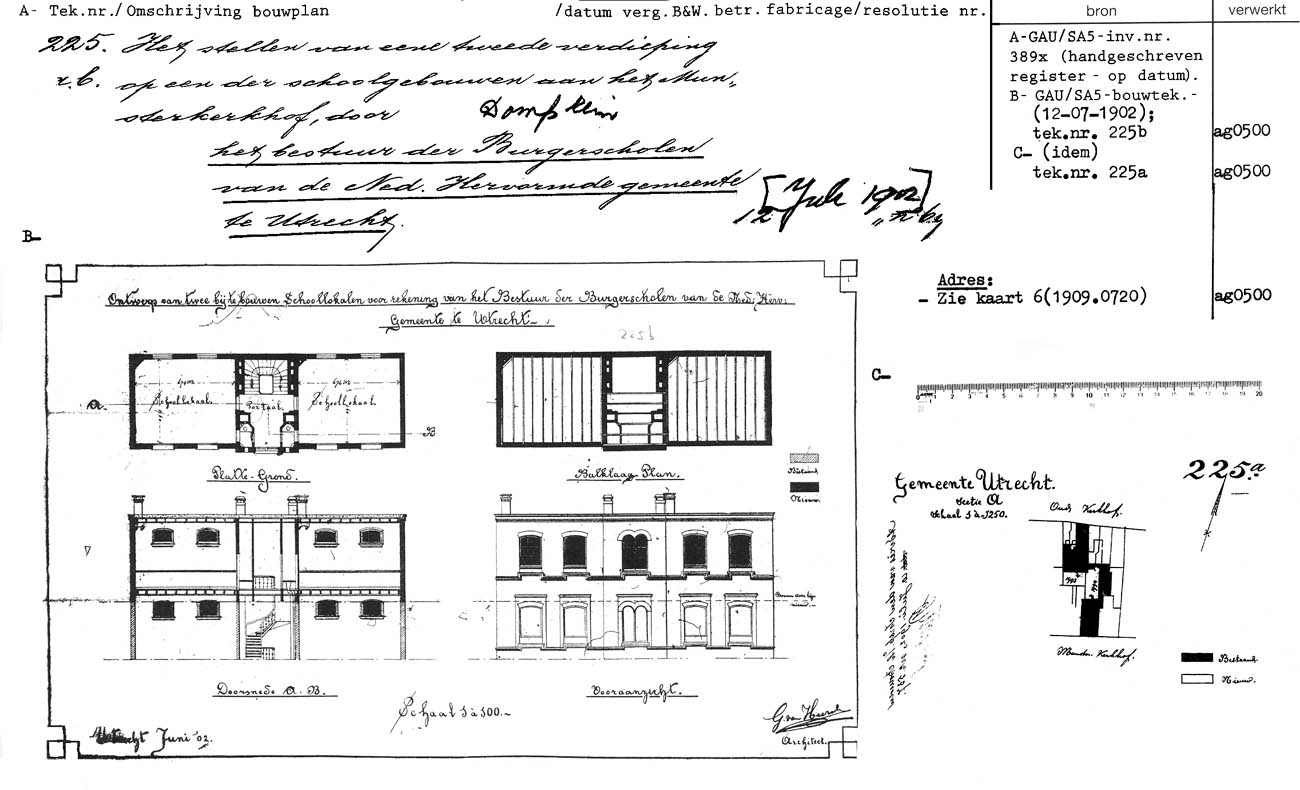 A- Tek.nr./Omschrijving bouwplan /datum verg.B&W. betr. fabricage/resolutie nr.
bron
verwerkt
225. Het stellen van eene tweede verdieping
r.b. op een der schoolgebouwen aan het Mun-
sterkerkhof, door Domplein
het bestuur der Burgerscholen
van de Ned. Hervormde gemeente
te Utrecht.
[Juli 1902]
12
A-GAU/SA5-inv.nr.
389x (handgeschreven
register - op datum).
B- GAU/SA5-bouwtek.-
(12-07-1902);
tek.nr. 225b ag0500
C- (idem)
tek.nr. 225a ag0500
Adres:
- Zie kaart 6(1909.0720) ag0500
B-
Ontwerp van twee bij te bouwen Schoollokalen voor rekening van het Bestuur der Burgerscholen van de Ned: Herv:
Gemeente te Utrecht.
225b
Schoollokaal.
Portaal.
Schoollokaal.
A.
B
Platte-Grond.
Balklaag-Plan.
Bestaand
Nieuw.
Doorsnede A. B.
Vooraanzicht.
Schaal 1 à 100.-
Utrecht Juni '02.
Architect.
C-
0 1 2 3 4 5 6 7 8 9 10 11 12 13 14 15 16 17 18 19 20
Gemeente Utrecht.
Sectie A
Schaal 1 à 1250.
225a
Oud Kerkhof.
Munster Kerkhof.
Bestaand.
Nieuw.